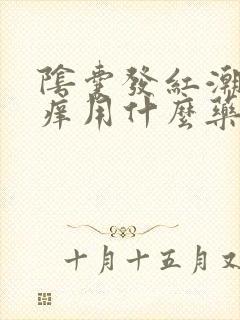 陰囊發紅潮
痒用什麼藥
十月十五月又